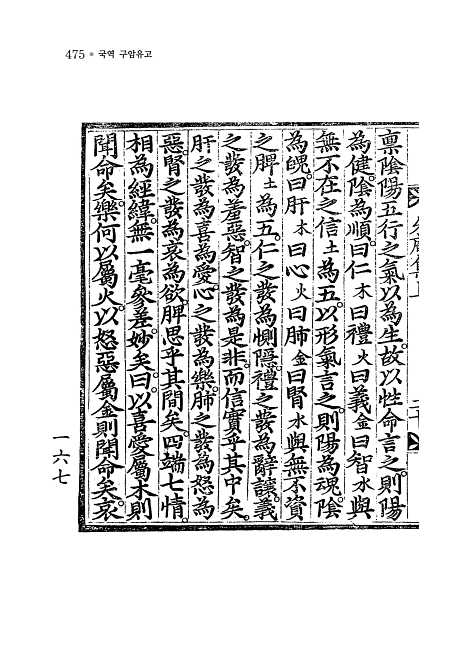 475 ● 국역 구암유고
禀陰陽五行之氣以為生故以性命言之則陽
為健陰為順曰仁木曰禮火曰義金曰智水與
無不在之信土為五以形氣言之則陽為魂陰
為魄曰肝木曰心火曰肺金曰腎水與無不資
之脾土為五仁之發為惻隱禮之發為辭讓義
之發為羞惡智之發為是非而信實乎其中矣
肝之發為喜為愛心之發為樂肺之發為怒為
惡腎之發為哀為欲脾思乎其間矣四端七情
相為經緯無一毫參差妙矣曰以喜愛屬木則
聞命矣樂何以屬火以怒惡屬金則聞命矣哀
一六七